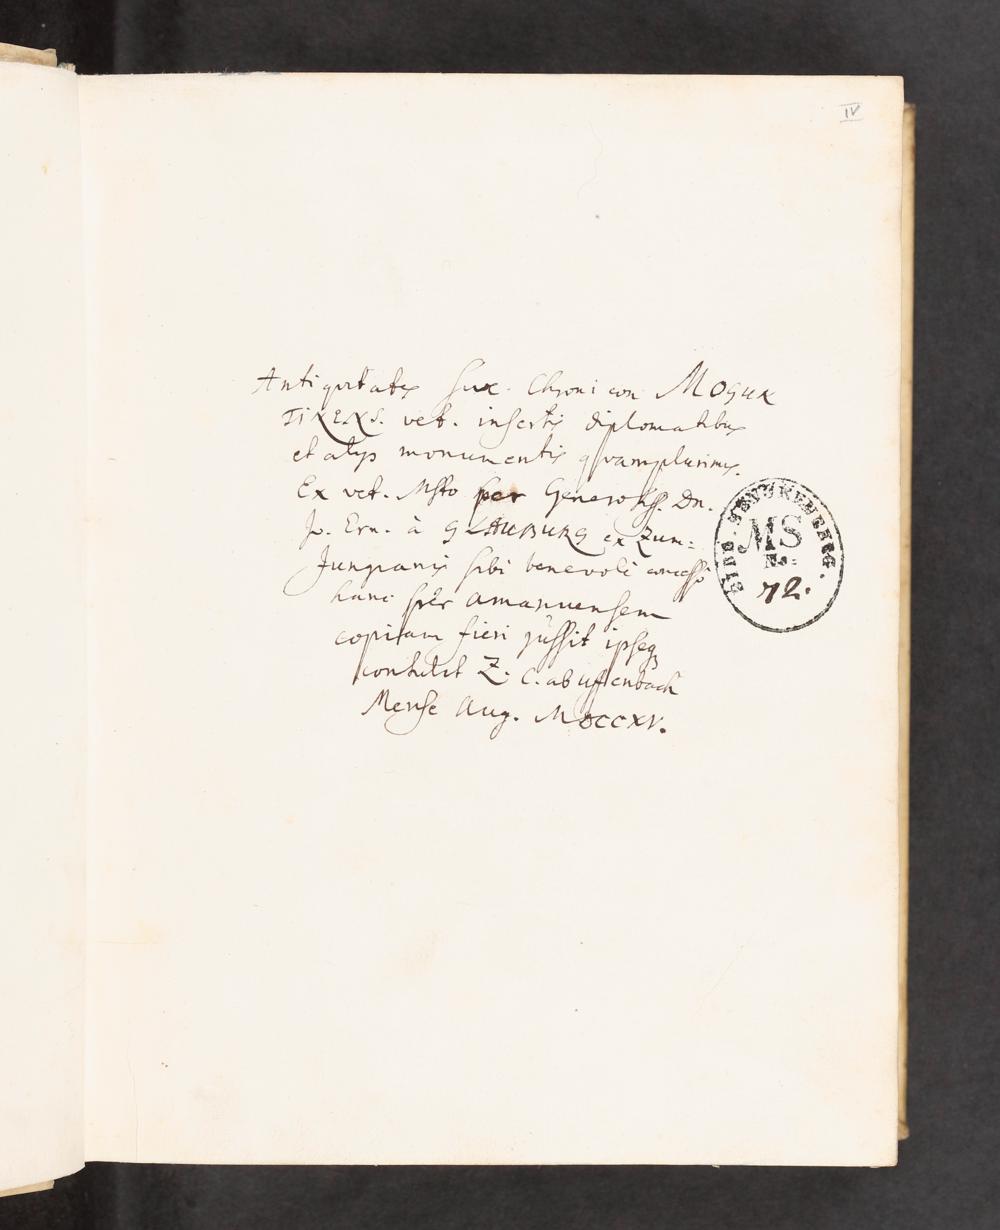 IV
Antiquitates sive Chronicon MOGUN
TINENS. vet. insertis diplomatibus
et alijs monumentis qvamplurimis.
Ex vet. Msto per Generosiss. Dn.
Jo. Ern. à GLAUBURG ex Zum=
Jungianis sibi benevole concesso
hanc per amanuensem
copiam fieri jussit ipseq
contulit Z. C. ab Uffenbach
Mense Aug. MDCCXV.
MS
No.
72.